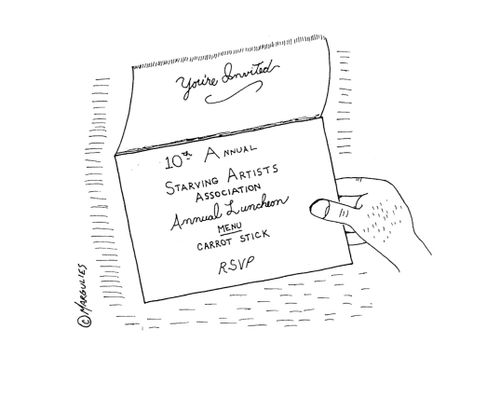 You're Invited
10th Annual
Starving Artists
Association
Annual Luncheon
MENU
CARROT STICK
RSVP
©MARGULIES